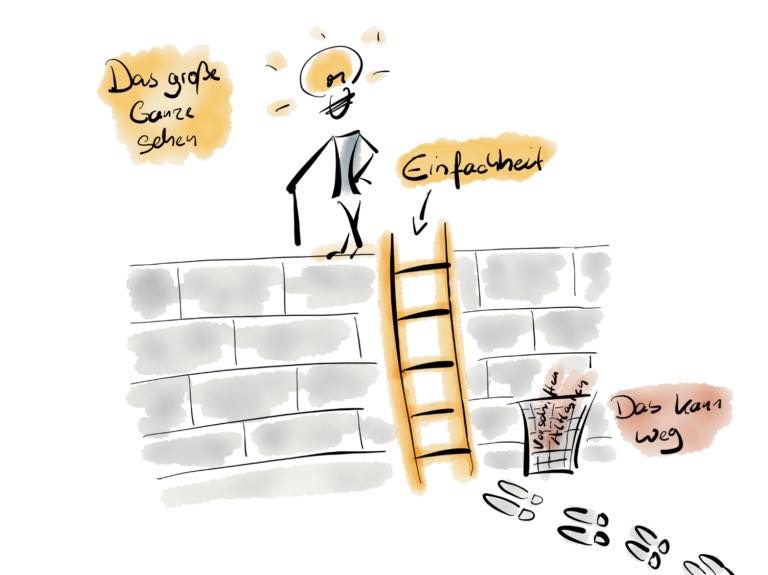 Das große
Ganze
sehen
Einfachheit
Vorschriften
Das kann
weg